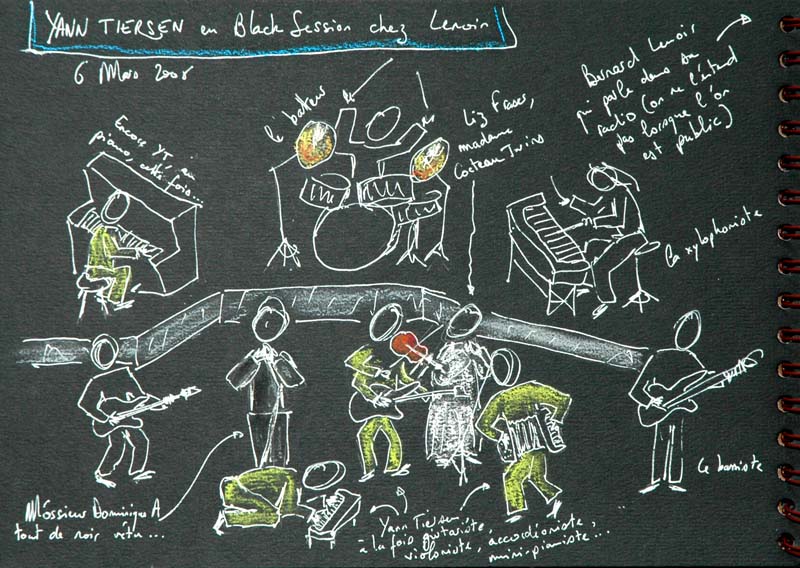 YANN TIERSEN en Black Session chez Lenoir
6 Mars 2006
Encore YT, au
piano, cette fois...
le batteur
Liz Fraser,
madame
Cocteau Twins
Bernard Lenoir
qui parle dans sa
radio (on ne l'entend
pas lorsque l'on
est public)
la xylophoniste
Môssieur Dominique A
tout de noir vêtu...
Yann Tiersen
à la fois guitariste,
violoniste, accordéoniste,
mini-pianiste...
le bassiste